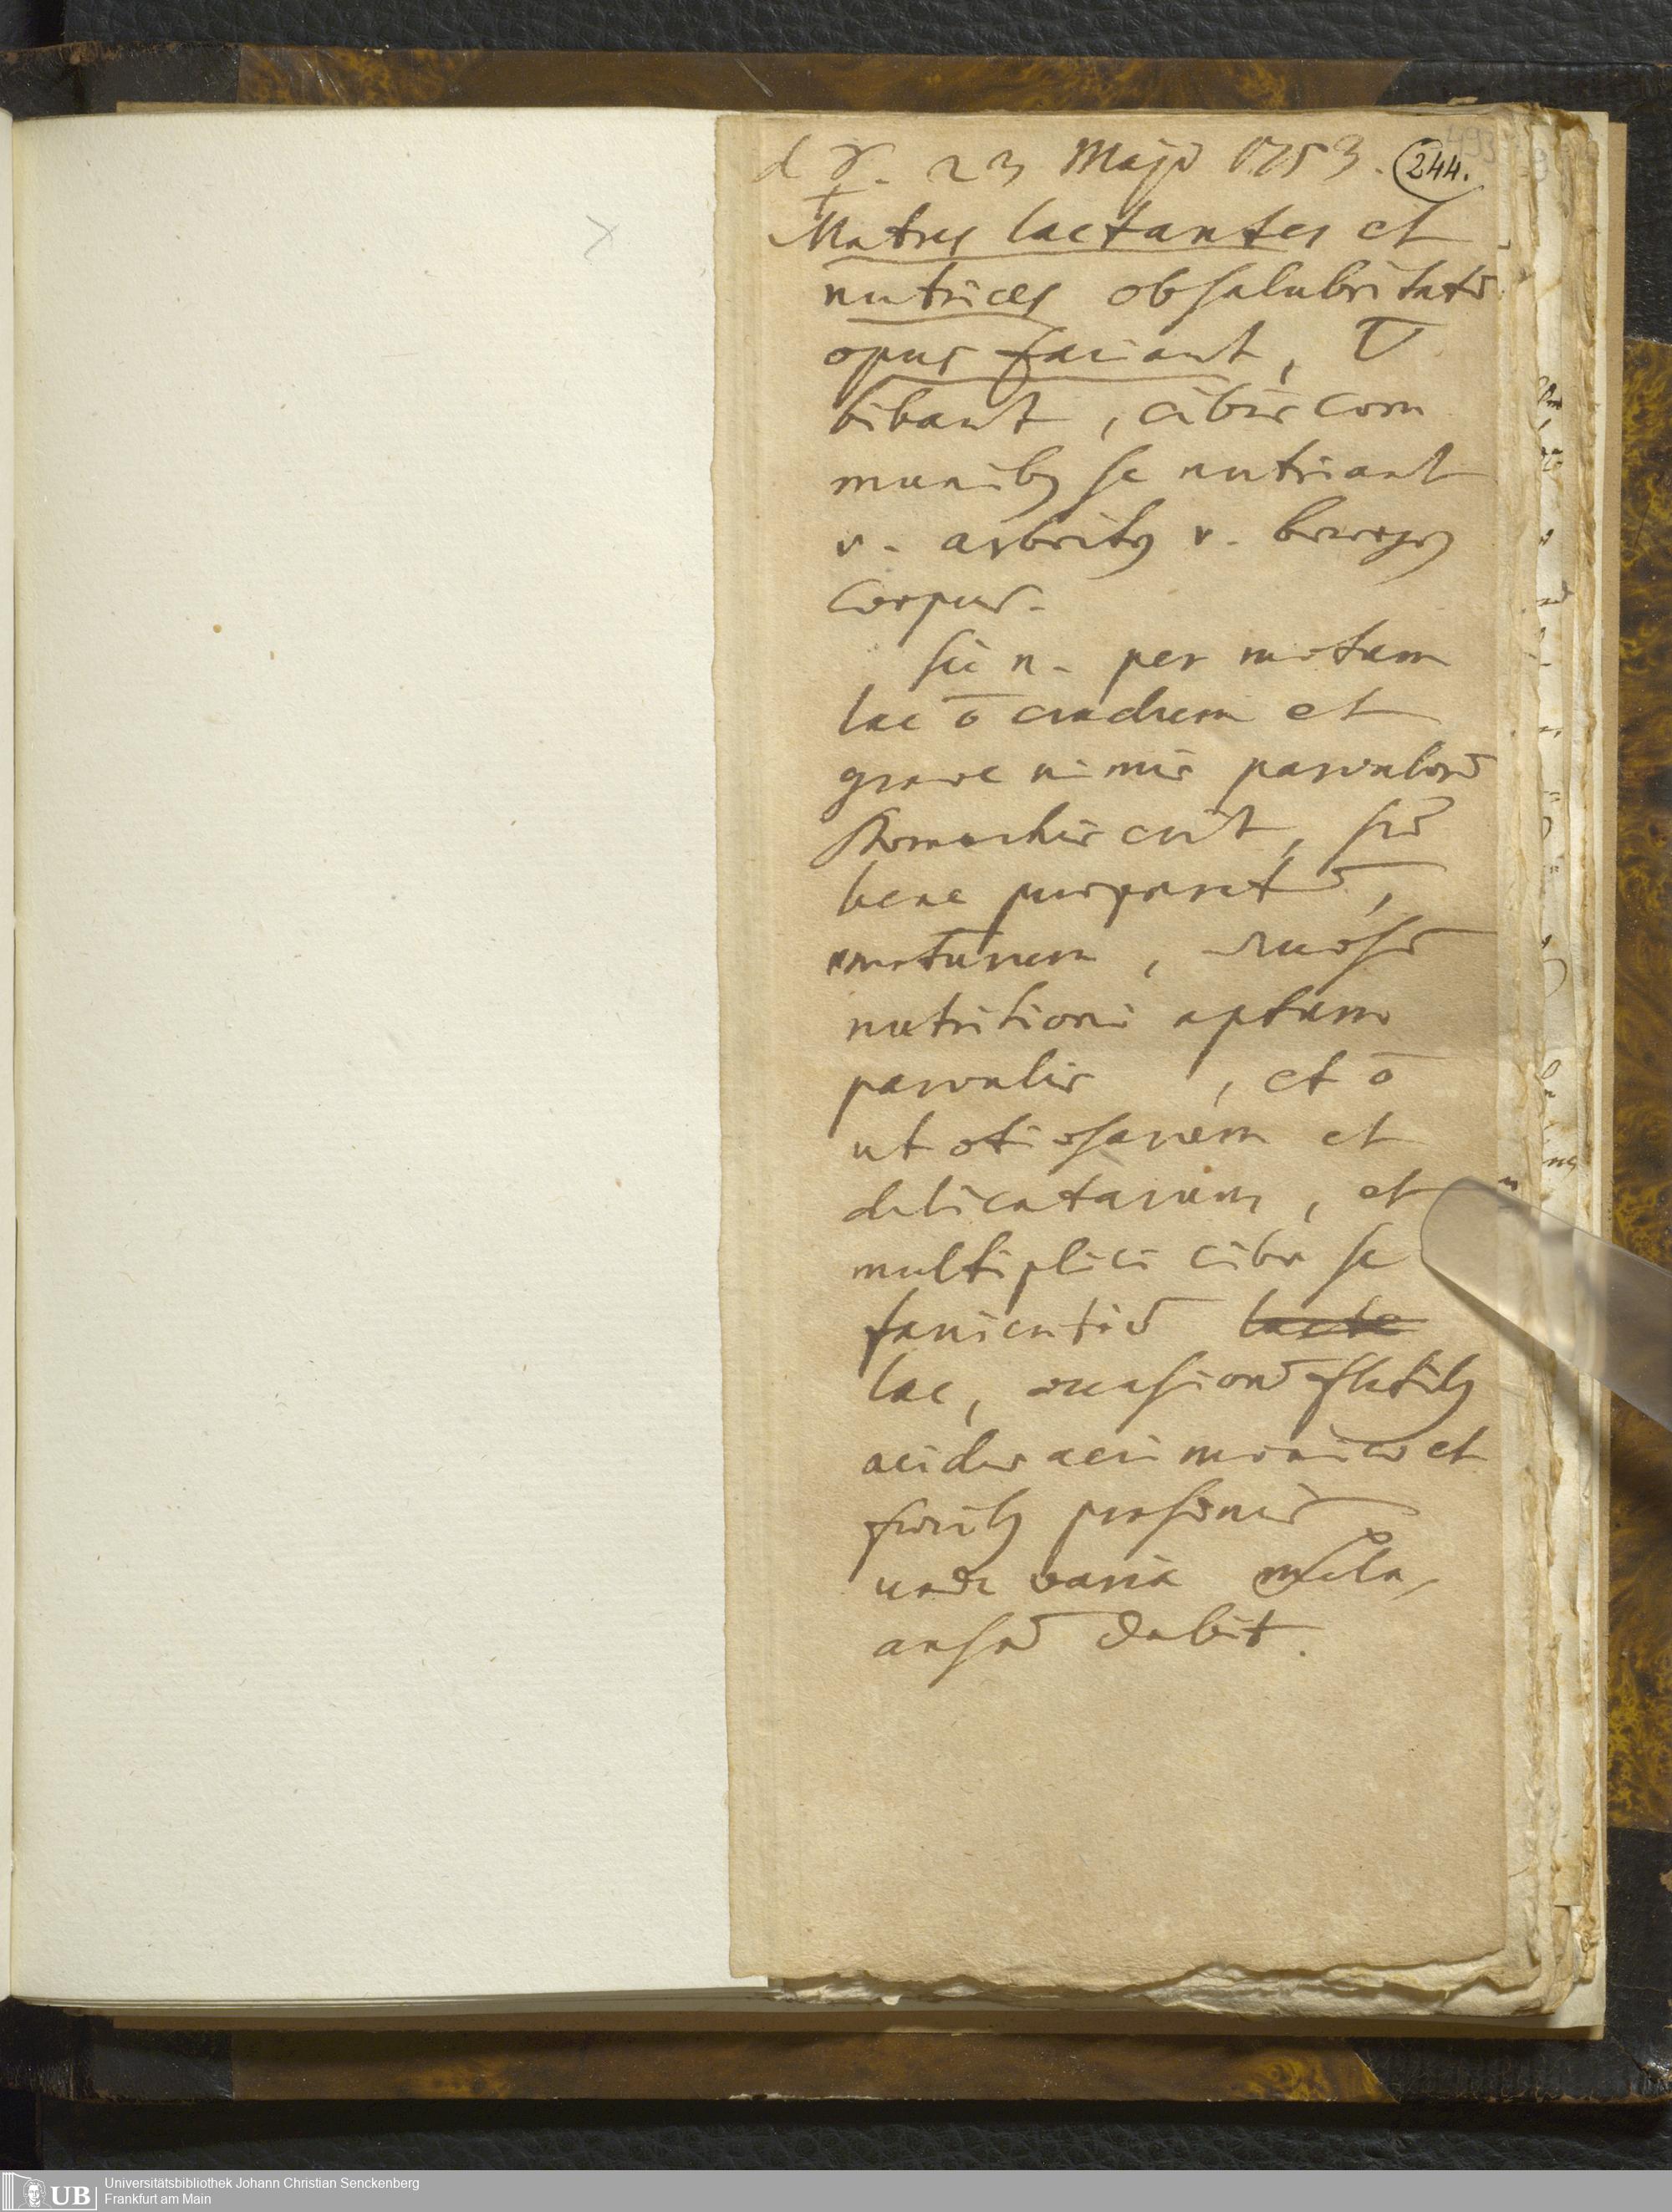 d ☿. 23 Maji 1753. 244.
Matres lactantes et
nutrices ob salubritatē
opus faciant, ▽
bibant, cibis com
munibꝫ se nutriant
corpus.
Sic n. per motum
lac ō crudum et
grave nimis parvulorū
stomachis erit, sed
bene præparatū,
nutritioni aptum
parvulis, et ō
ut otiosarum et
delicatarum, et
multiplici cibo se
farcientiū lacte
lac, occasionē flatibꝫ
acidis acrimoniis et
unde varia mala,
ansā dabit.
UB
Universitätsbibliothek Johann Christian Senckenberg
Frankfurt am Main